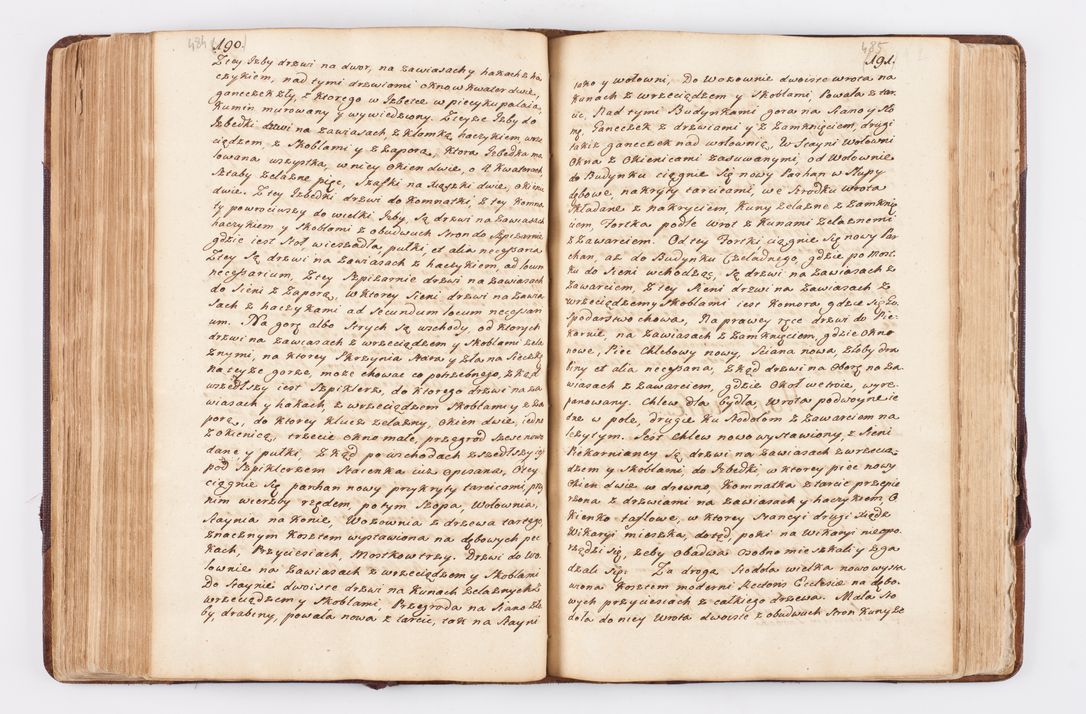 484
190.
Z tey Izby drzwi na dwor, na zawiasach y hakach z ha-
czykiem, nad tymi drzwiami okno w kwater dwie,
ganeczek zły, z ktorego w Izbetce w piecyku palaią,
Kumin murowany y wywiedziony. Z teyże Izby do
Izbedki drzwi na zawiasach z klomką, haczykiem, wrze
ciędzem, z Skoblami y z Zaporą, ktora Izbedka ma
lowana wszystka, w niey okien dwie, o 4 kwaterach
Sztaby Zelazne pięc, Szafki na Xiąszki dwie, okien
dwie. Z tey Izbedki drzwi do Komnatki, z tey Komna
ty powrociwszy do wielki Izby, Są drzwi na zawiasach
haczykiem y Skoblami z obudwuch Stron do Szpizarnie
gdzie iest Stoł wieszadła pułki et alia necessaria
Z tey Są drzwi na zawiasach z haczykiem, ad locum
necessarium, Z tey Szpizarnie drzwi na zawiasach
do Sieni z Zaporą, w ktorey Sieni drzwi na zawia
sach z haczykami ad Secundum locum necessari
um. Na gorę albo Strych Są wschody, od ktorych
drzwi na zawiasach z wrzeciędzem y Skoblami Zela
znymi, na ktorey Skrzynia Stara y Zła na Sieczkę
na teyze gorze, może chowac co potrzebnego, z kąd
wszedłszy iest Szpiklerz, do ktorego drzwi na za
wiasach y hakach, z wrzeciędzem Skoblami y z Za
porą, do ktorey klucz zelazny, Okien dwie, iedne
z okienicą, trzecie okno małe, przegrod Szesc nowo
dane y pułki. Z kąd po wschodach z Szedłszy iest
pod Szpiklerzem Stacenka iuż opisana, Otey
ciągnie Się parkan nowy przykryty tarcicami, przy
nim wierzby rzędem, potym Szopa, Wołownia,
Staynia na konie, Wozownia z drzewa tartego
znacznym kosztem wystawiona na dębowych pe
kach, Przyciesiach, Mostkow trzy. Drzwi do Wo
lownie na zawiasach z wrzeciędzem y Skoblami
Do Staynie dwoiste drzwi na kunach Zelaznych z
wrzeciędzem y Skoblami, Przegroda na Siano zło
by, drabiny, powała nowa z tarcic, tak na Stayni
485
191.
tako y wołowni, Do Wozownie dwoiste wrota na
kunach z wrzeciędzem y Skoblami, Powała z tar
cic, Nad tymi Budynkami gora na Siano y Sło
mę, Ganeczek z drzwiami y z Zamknięciem, drugi
takiż ganeczek nad wołownią, W Stayni Wołowni
Okna z okienicami zasuwanymi, od Wołownie
do Budynku ciągnie Się nowy Parkan w Słupy
dębowe, nakryty tarcicami, we Srodku wrota
Składane z nakryciem, Kuny żelazne z Zamknię
ciem, Fortka podle wrot z Kunami żelaznemi
z Zawarciem. Od tey Fortki ciągnie Się nowy Par
chan, aż do Budynku Czeladnego, gdzie po Most
ku do Sieni wchodząc, Są drzwi na Zawiasach z
Zawarciem, Z tey Sieni drzwi na Zawiasach z
wrzeciędzem y Skoblami iest Komora gdzie Się Go
spodarstwo chowa, Na prawey ręce drzwi do Pie
karnie, na Zawiasach z Zamknięciem, gdzie okno
nowe, Piec Chlebowy nowy, Sciana nowa, żłoby dra
biny et alia necessaria, Z kąd drzwi na Oborę na za
wiasach z Zawarciem, gdzie okoł we troie, wyre-
panowany. Chlew dla bydła Wrota podwoyne ie
dne w pole, drugie ku Stodołom z Zawarciem na
lczytym. Jest Chlew nowo wystawiony, z Sieni
Piekarnianey Są drzwi na Zawiasach z wrzecią
dzem y Skoblami, do Izbedki, w ktorey piec nowy
Okien dwie w drewno, Komnatka z tarcic przepie
rzona z drzwiami na Zawiasach y haczykiem, O
kienko taflowe, w ktorey Stancyi drugi Xiądz
Wikaryi mieszka, dotąd, poki na Wikaryi nieopo
rządzi Się, zeby obadwa osobno mieszkali y zga
dzali Się. Za drogą Stodoła wielka nowo wysta
wiona kosztem moderni Rectoris Ecclesiæ na dębo
wych przyciesiach z całkiego drzewa. Mała Sto
doła do niey Wrota dwoiste z obudwuch Stron Kuny ze